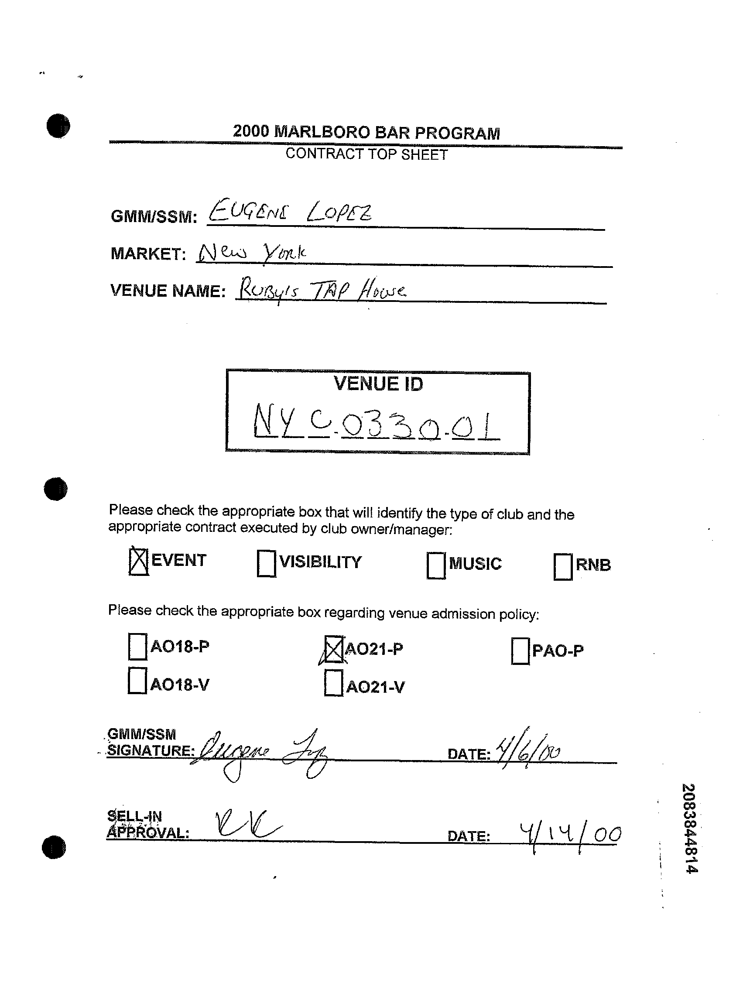 2000 MARLBORO BAR PROGRAM
CONTRACT TOP SHEET
GMM/SSM: EUGENE LOPEZ
MARKET: New York
VENUE NAME: RUBY'S TAP House
VENUE ID
NYC-0330-01
Please check the appropriate box that will identify the type of club and the
appropriate contract executed by club owner/manager:
EVENT VISIBILITY MUSIC RNB
Please check the appropriate box regarding venue admission policy:
AO18-P AO21-P PAO-P
AO18-V AO21-V
GMM/SSM
SIGNATURE: Eugene DATE: 4/6/00
SELL-IN
APPROVAL: RK DATE: 4/14/00
2083844814